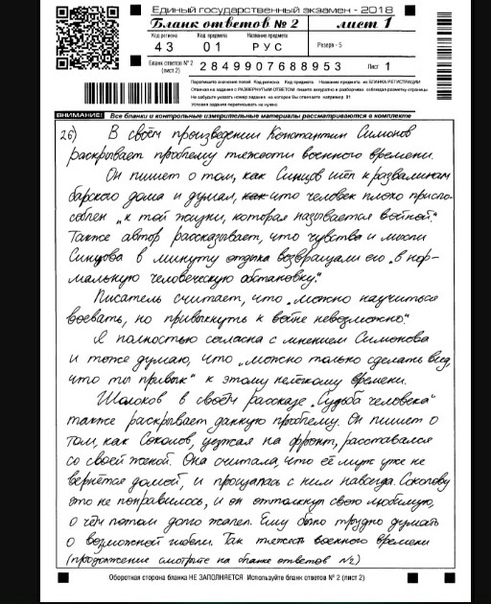 Единый государственный экзамен - 2018
Бланк ответов № 2 лист 1
Код региона Код предмета Название предмета
43 01 РУС Резерв - 5
Бланк ответов № 2 (лист 2) 2849907688953 Лист 1
Перепишите значения полей Код региона Код предмета Название предмета из БЛАНКА РЕГИСТРАЦИИ
Отвечая на задания с РАЗВЕРНУТЫМ ОТВЕТОМ пишите аккуратно и разборчиво соблюдая разметку страницы
Не забудьте указать номер задания на которое Вы отвечаете например 31
Условия задания переписывать не нужно
ВНИМАНИЕ! Все бланки и контрольные измерительные материалы рассматриваются в комплекте
26) В своём произведении Константин Симонов
раскрывает проблему тяжести военного времени.
Он пишет о том, как Синцов шёл к развалинам
барского дома и думал, что человек плохо приспо-
соблен „к той жизни, которая называется войной."
Также автор рассказывает, что чувства и мысли
Синцова в минуту отдыха возвращали его „в нор-
мальную человеческую обстановку."
Писатель считает, что „можно научиться
воевать, но привыкнуть к войне невозможно."
Я полностью согласна с мнением Симонова
и тоже думаю, что „можно только сделать вид,
что ты привык" к этому нелёгкому времени.
Шолохов в своём рассказе „Судьба человека"
также раскрывает данную проблему. Он пишет о
том, как Соколов, уезжая на фронт, расставался
со своей женой. Она считала, что её муж уже не
вернётся домой, и прощалась с ним навсегда. Соколову
это не понравилось, и он оттолкнул свою любимую,
о чём потом долго жалел. Ему было трудно думать
о возможной гибели. Так тяжесть военного времени
(продолжение смотрите на бланке ответов №2)
Оборотная сторона бланка НЕ ЗАПОЛНЯЕТСЯ Используйте бланк ответов № 2 (лист 2)